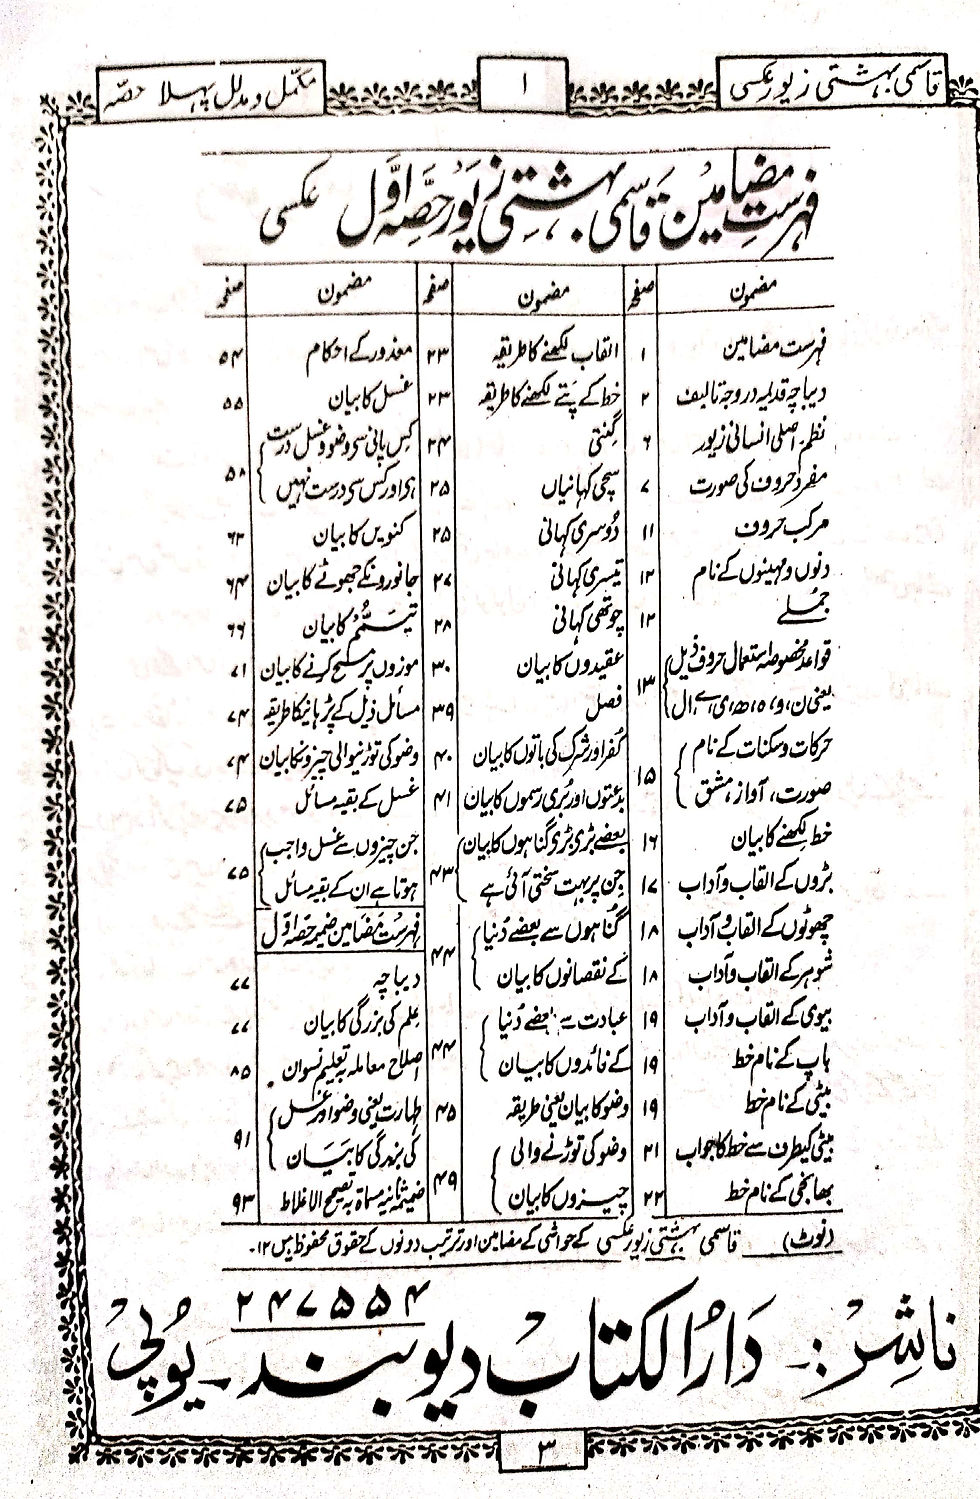 قاسمی بہشتی زیور عکسی
۱
مکمل و مدلل پہلا حصہ
فہرست مضامین قاسمی بہشتی زیور حصہ اوّل عکسی
مضمون صفحہ
فہرست مضامین ۱
دیباچہ قدیمہ در وجہ تالیف ۲
نظم اصلی انسانی زیور ۶
مفرد حروف کی صورت ۷
مرکب حروف ۱۱
دنوں و مہینوں کے نام ۱۲
جملے ۱۲
قواعد مخصوصہ استعمال حروف ذیل
یعنی ن، و، ہ، ھ، ی، ے، ال ۱۳
حرکات و سکنات کے نام
صورت، آواز، مشق ۱۵
خط لکھنے کا بیان ۱۶
بڑوں کے القاب و آداب ۱۷
چھوٹوں کے القاب و آداب ۱۸
شوہر کے القاب و آداب ۱۸
بیوی کے القاب و آداب ۱۹
باپ کے نام خط ۱۹
بیٹی کے نام خط ۱۹
بیٹی کیطرف سے خط کا جواب ۲۱
بھانجی کے نام خط ۲۲
مضمون صفحہ
القاب لکھنے کا طریقہ ۲۳
خط کے پتے لکھنے کا طریقہ ۲۳
گنتی ۲۴
سچی کہانیاں ۲۵
دُوسری کہانی ۲۵
تیسری کہانی ۲۷
چوتھی کہانی ۲۸
عقیدوں کا بیان ۳۰
فصل ۳۹
کُفر اور شرک کی باتوں کا بیان ۴۰
بدعتوں اور بُری رسموں کا بیان ۴۱
بعضے بڑی بڑی گناہوں کا بیان
جن پر بہت سختی آئی ہے ۴۳
گناہوں سے بعضے دُنیا
کے نقصانوں کا بیان ۴۴
عبادت سے بعضے دُنیا
کے فائدوں کا بیان ۴۴
وضو کا بیان یعنی طریقہ ۴۵
وضو کی توڑنے والی
چیزوں کا بیان ۴۹
مضمون صفحہ
معذور کے احکام ۵۴
غسل کا بیان ۵۵
کس پانی سی وضو و غسل درست
ہی اور کس سی درست نہیں ۵۸
کنویں کا بیان ۶۲
جانورونکے جھوٹے کا بیان ۶۴
تیمم کا بیان ۶۶
موزوں پر مسح کرنے کا بیان ۷۱
مسائل ذیل کے پڑھانیکا طریقہ ۷۴
وضو کی توڑنیوالی چیزونکا بیان ۷۴
غسل کے بقیہ مسائل ۷۵
جن چیزوں سے غسل واجب
ہوتا ہے ان کے بقیہ مسائل ۷۵
فہرست مضامین ضمیر حصہ اوّل
دیباچہ ۷۷
علم کی بزرگی کا بیان ۷۷
اصلاح معاملہ بہ تعلیم نسواں ۸۵
طہارت یعنی وضو اور غسل
کی بزرگی کا بیان ۹۱
ضمیمہ ثانیہ مسماۃ بہ تصحیح الاغلاط ۹۳
(نوٹ) قاسمی بہشتی زیور عکسی کے حواشی کے مضامین اور ترتیب دونوں کے حقوق محفوظ ہیں ۱۲۔
۲۴۷۵۵۴
ناشر :۔ دَارُ الکتاب دیوبند۔ یوپی
۳